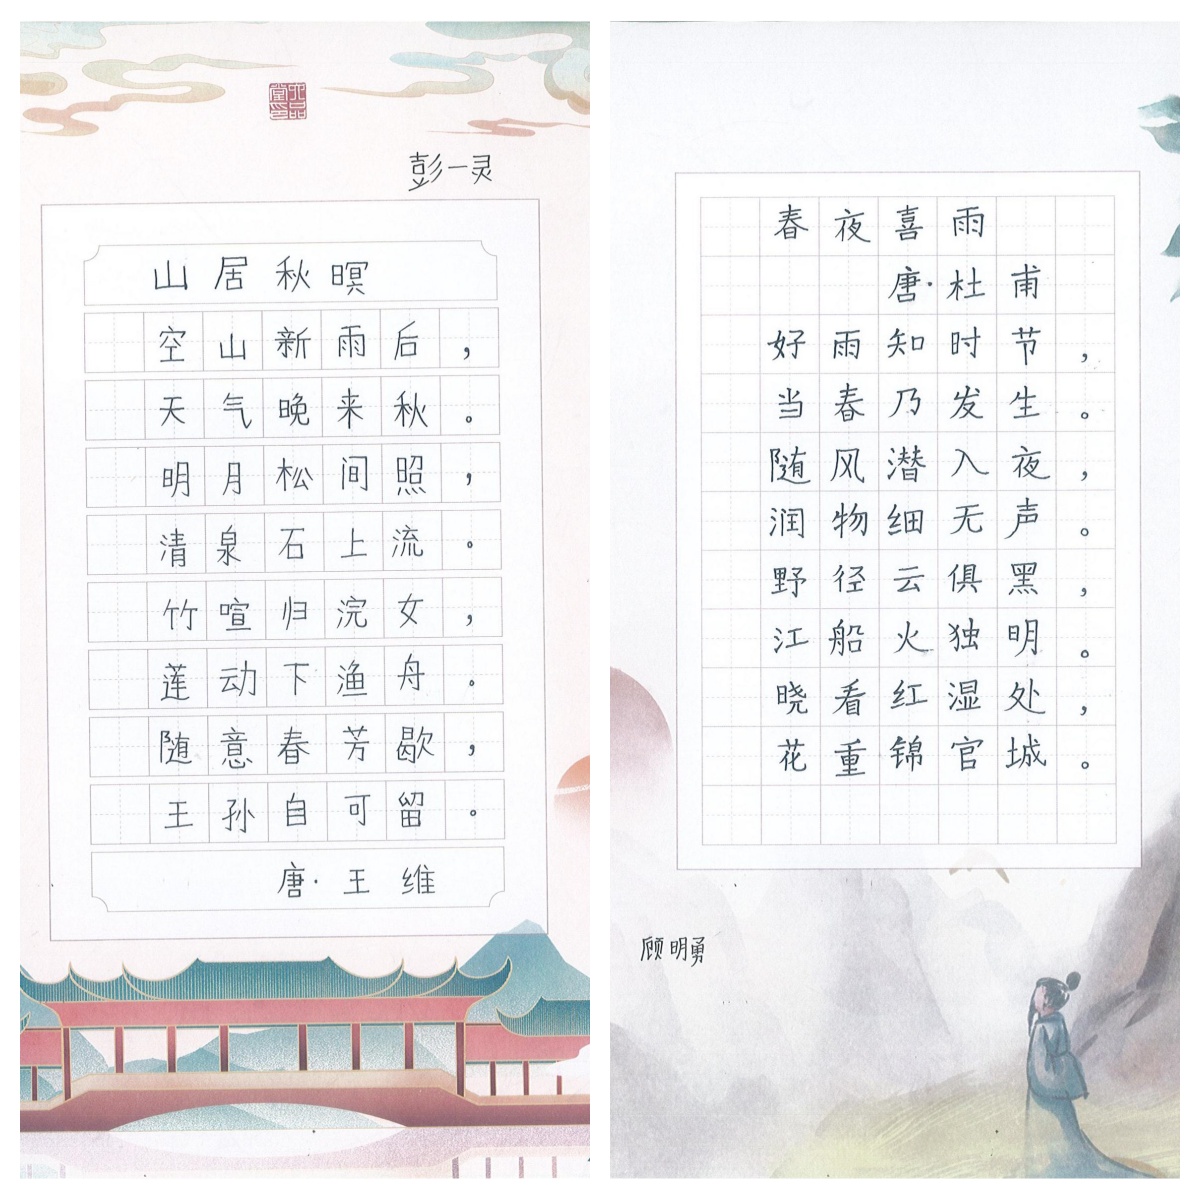 彭一灵
山居秋暝
空山新雨后，
天气晚来秋。
明月松间照，
清泉石上流。
竹喧归浣女，
莲动下渔舟。
随意春芳歇，
王孙自可留。
唐·王维
春夜喜雨
唐·杜甫
好雨知时节，
当春乃发生。
随风潜入夜，
润物细无声。
野径云俱黑，
江船火独明。
晓看红湿处，
花重锦官城。
顾明勇